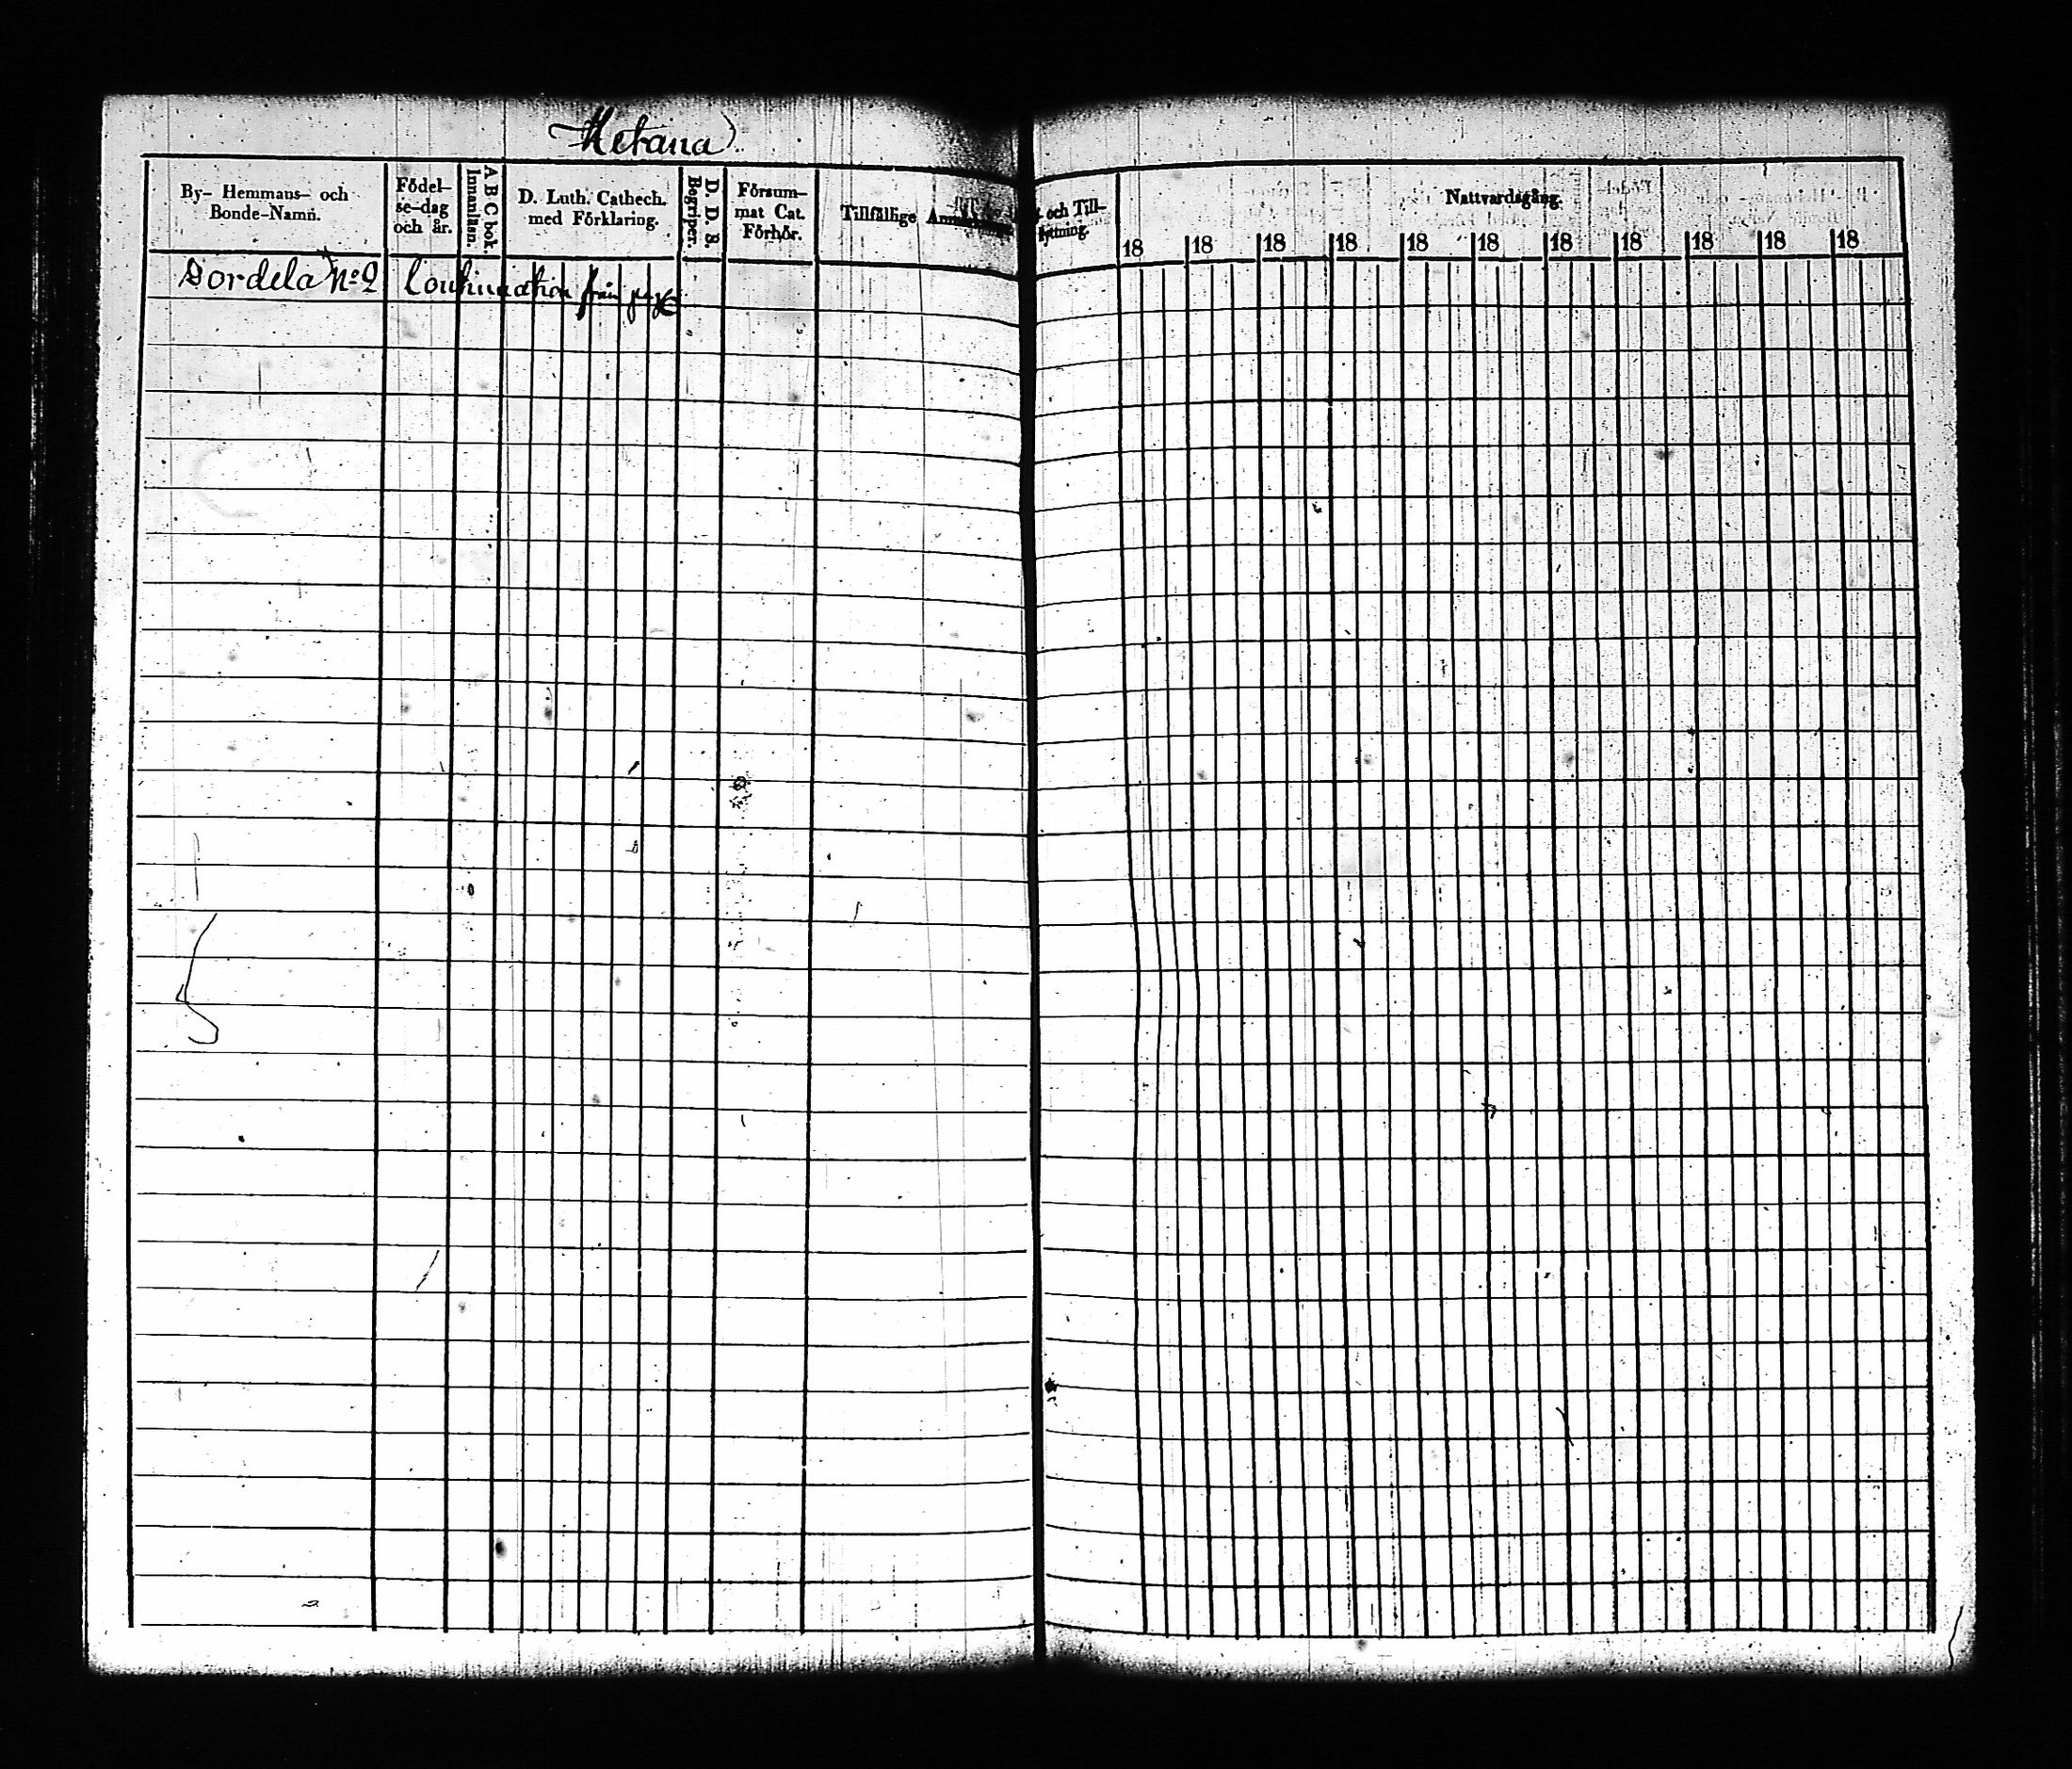 Metana
By- Hemmans- och
Bonde-Namn.
Födel-
se-dag
och år.
A B C bok.
Innanläsn.
D. Luth. Cathech.
med Förklaring.
D. D. S.
Begriper.
Försum-
mat Cat.
Förhör.
Tillfällige
och Till-
flyttning.
Nattvardsgång.
18 18 18 18 18 18 18 18 18 18 18
Sordela No 2 Continuation från pag